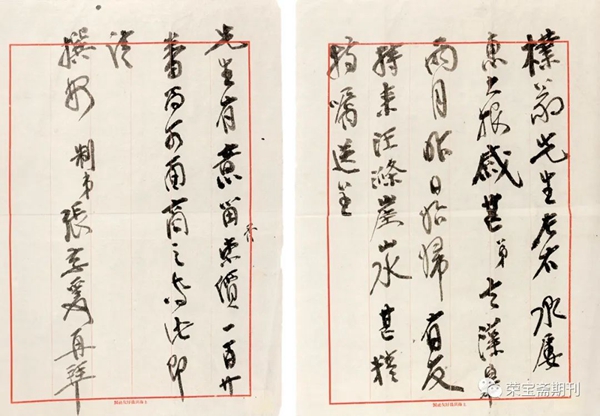 樸翁先生左右承屢
惠大報感甚弟去漢皋
兩月昨日始歸有友
持來汪滌崖水甚精
特囑送呈
先生有意留索價一百廿
番尚可面商之專此即
請
撰安 制弟張季爰再拜
荣宝斋期刊